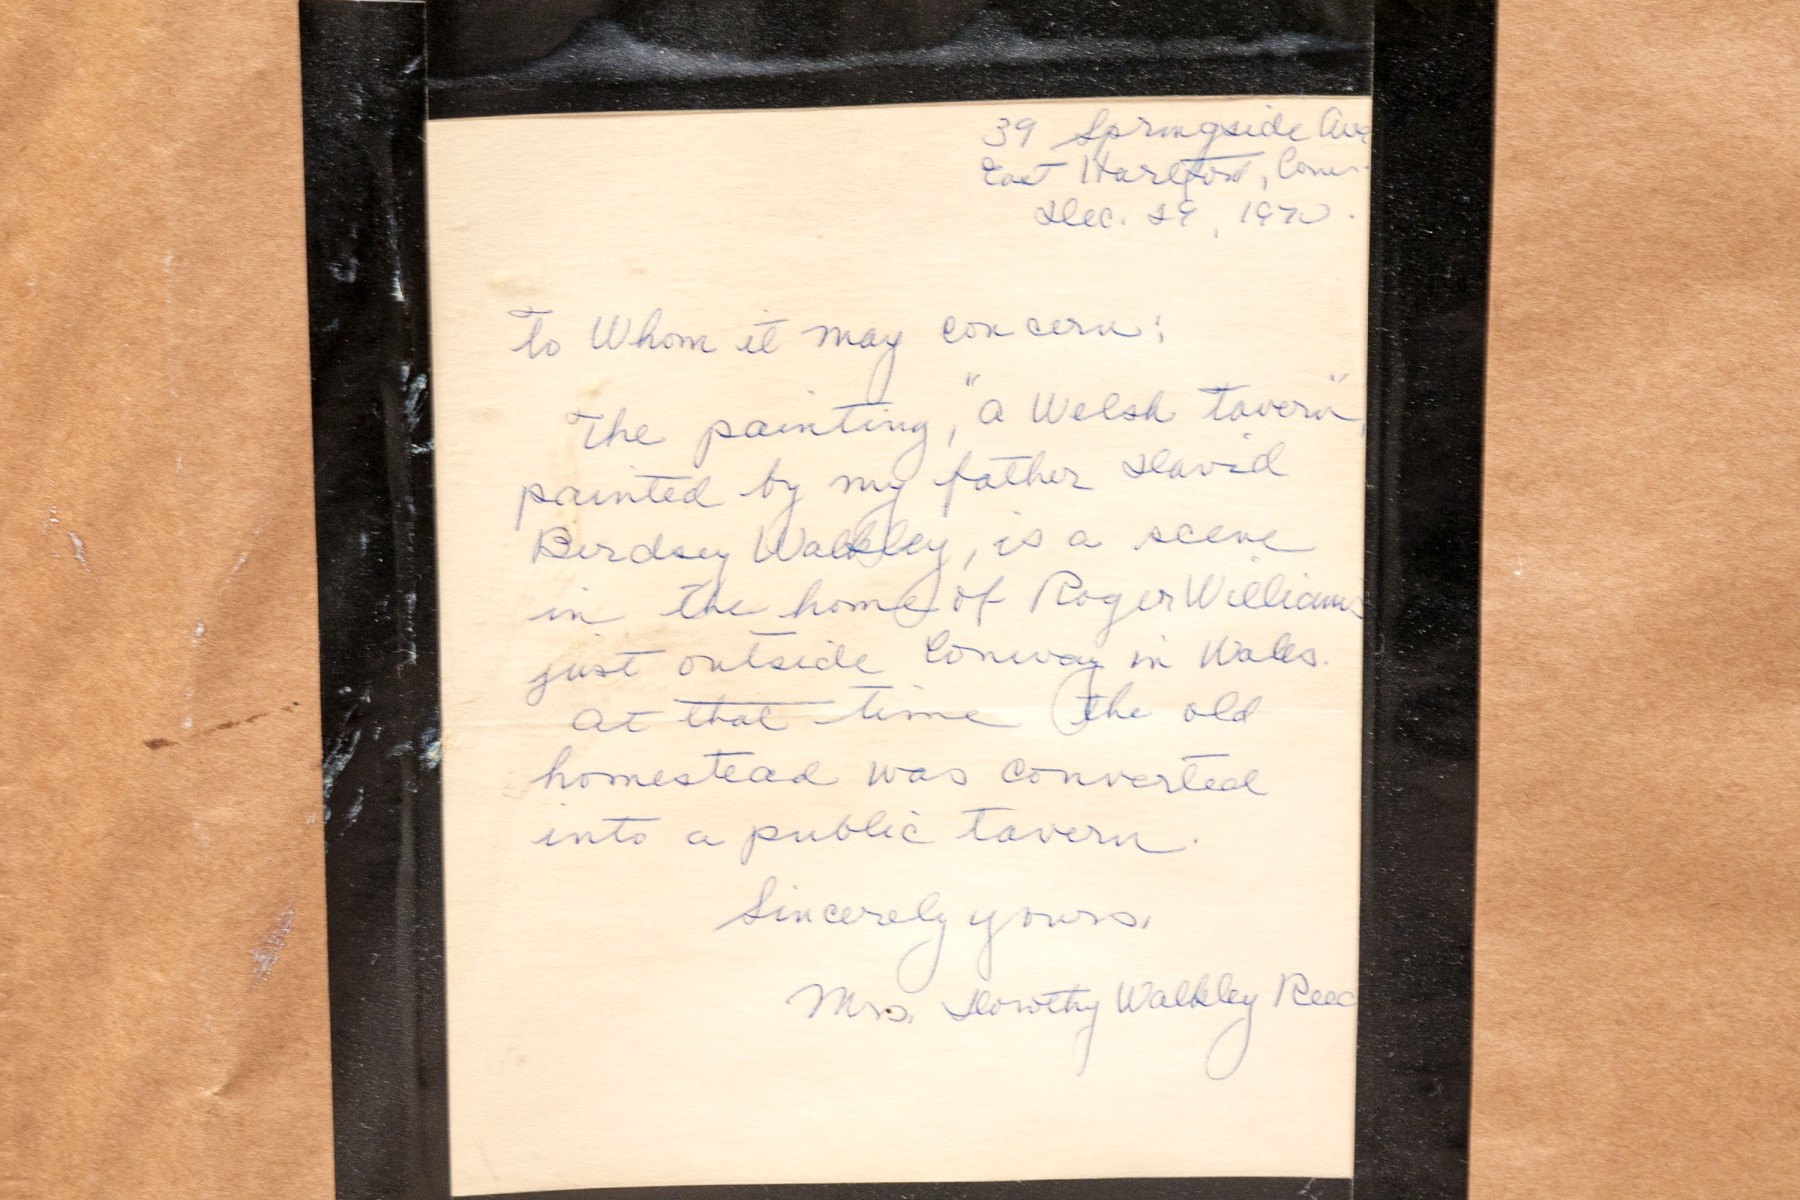 39 Springside Ave
East Hartford, Conn.
Dec. 29, 1970.
To Whom it may concern:
The painting, "a Welsh tavern",
painted by my father David
Birdsey Walkley, is a scene
in the home of Roger Williams
just outside Conway in Wales.
at that time the old
homestead was converted
into a public tavern.
Sincerely yours,
Mrs. Dorothy Walkley Reed